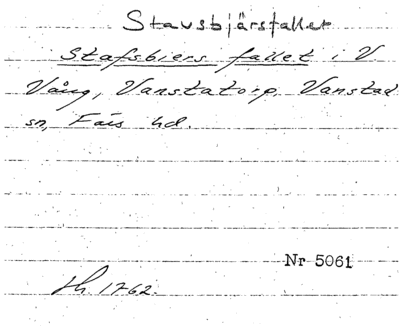 Stavsbjärsfallet
Stafsbiers fallet i V
Vång, Vanstatorp, Vanstad
sn, Färs hd.
Nr 5061
Lh. 1762.